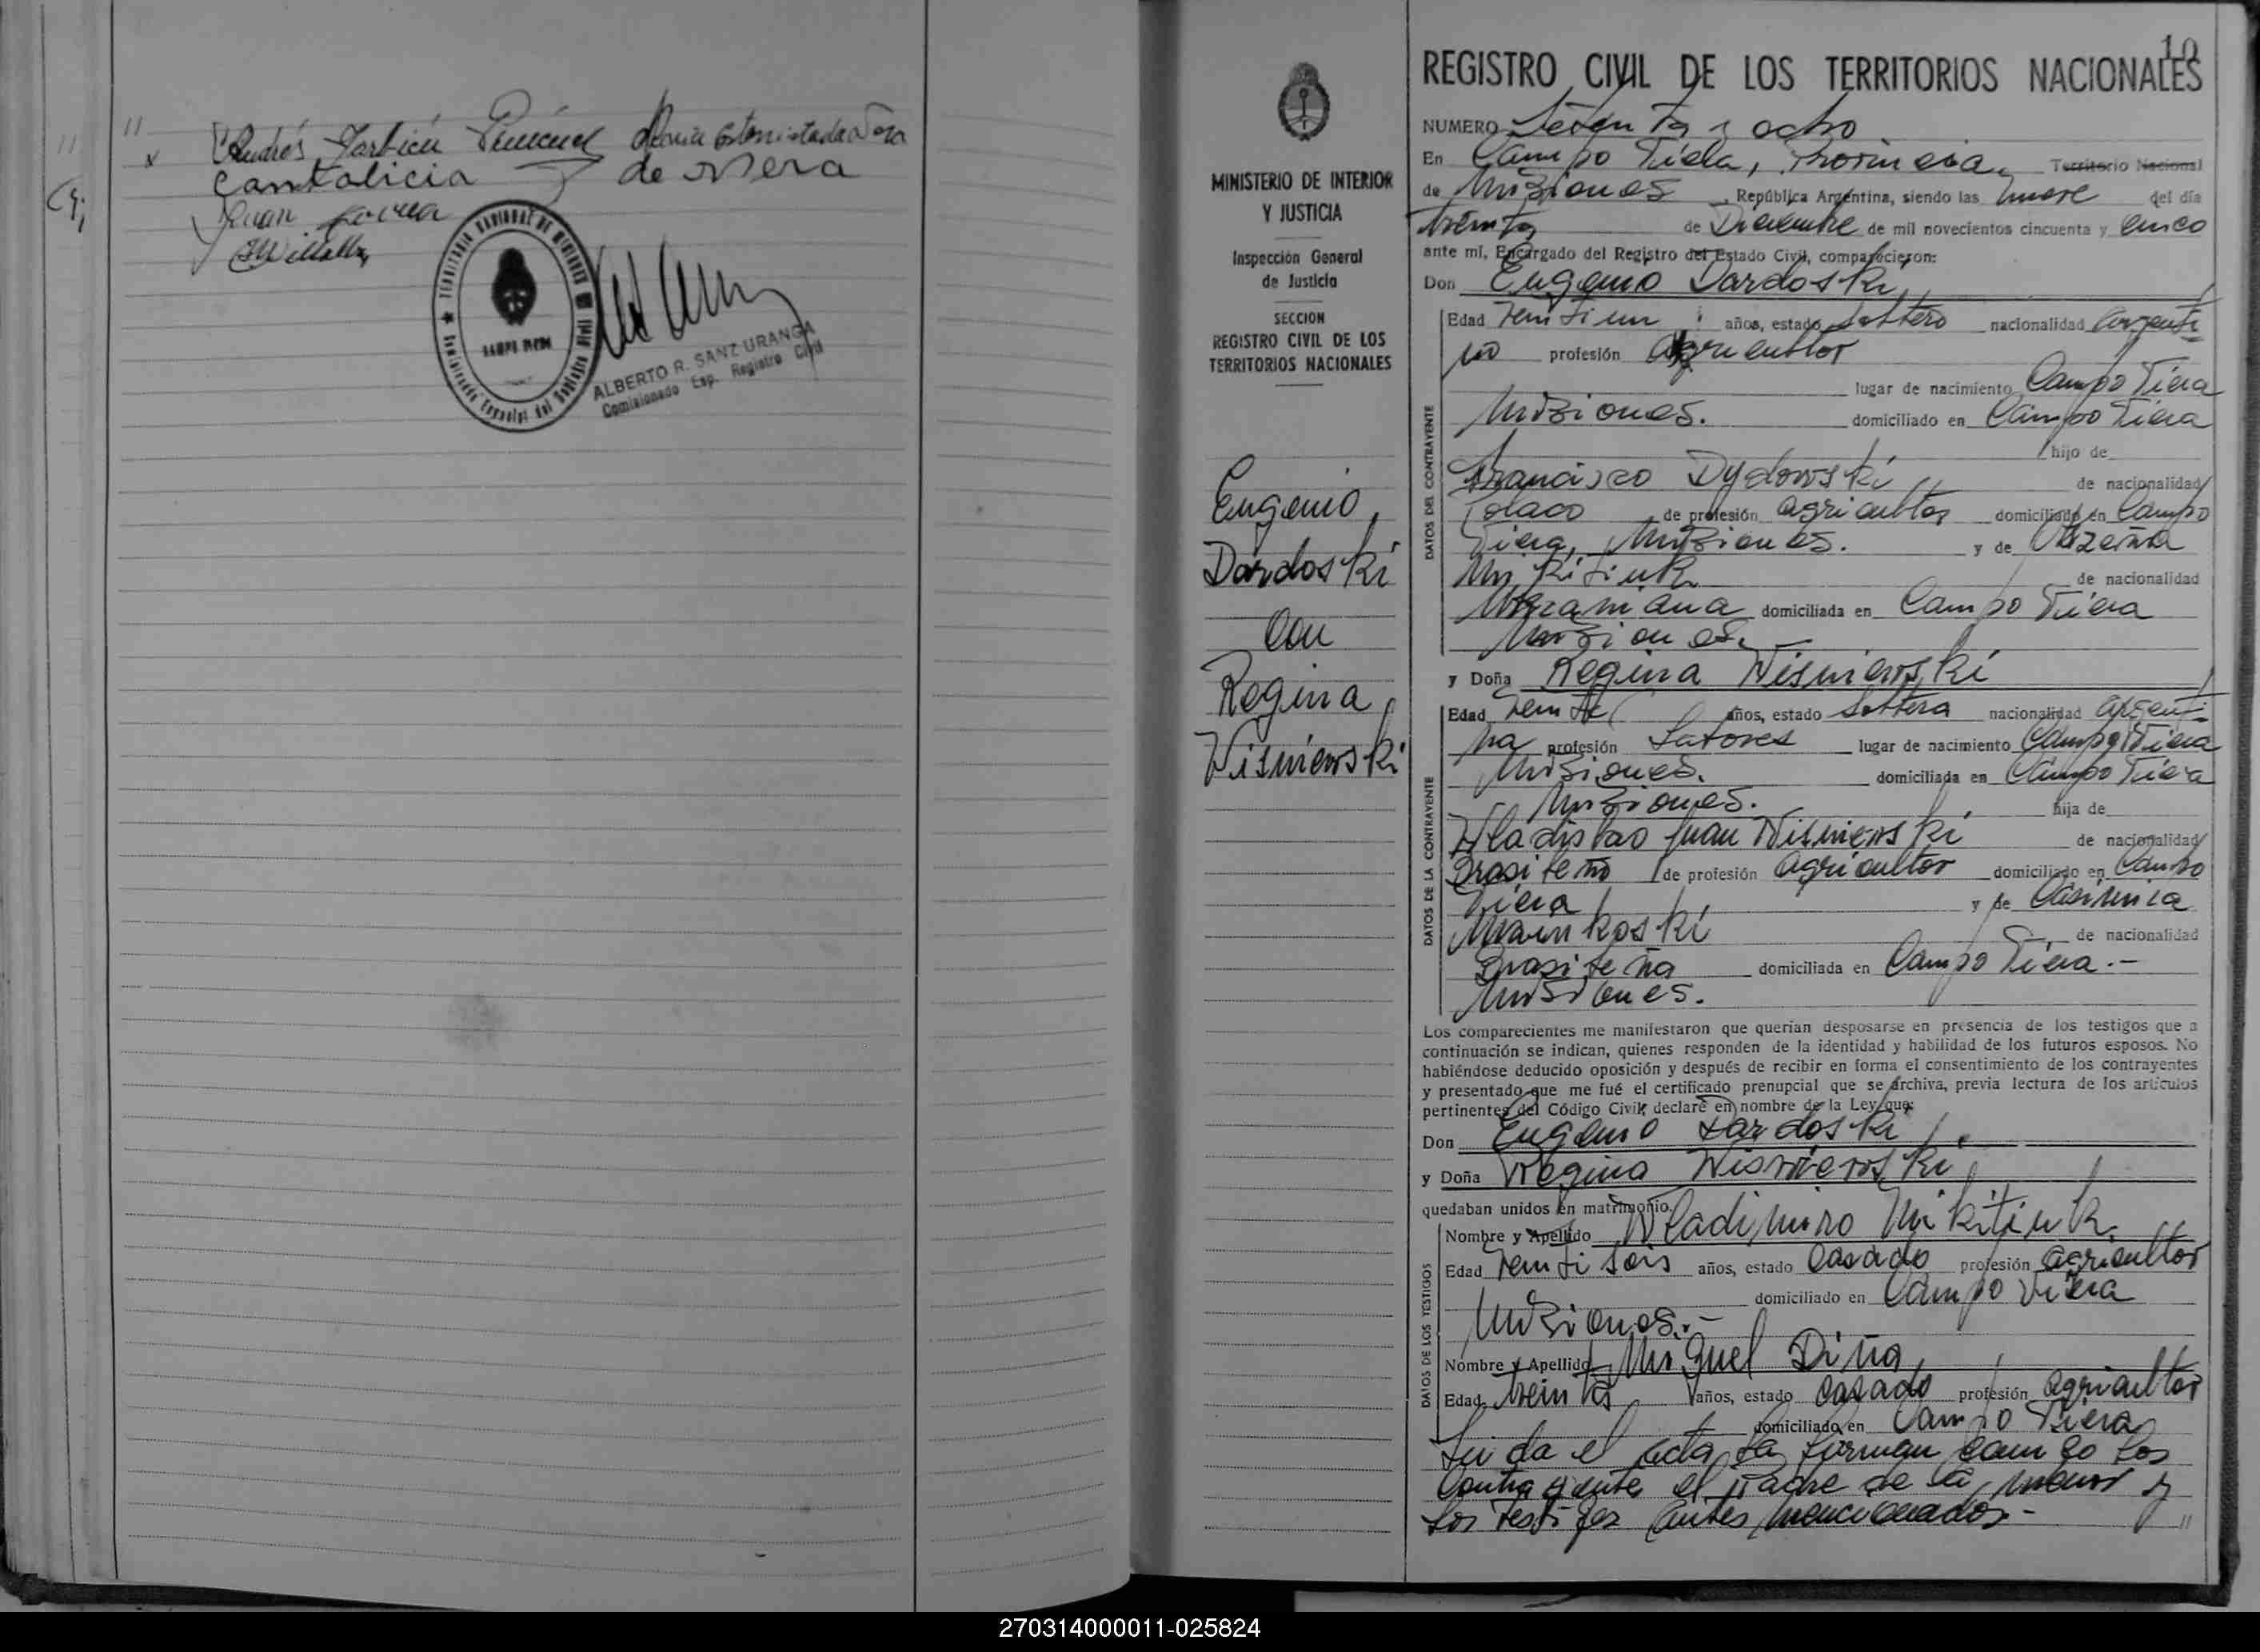 11
11
x
Andrés
Cantalicia de Mera
Juan
TERRITORIO NACIONAL DE MISIONES
ALBERTO R. SANZ URANGA
Comisionado Esp. Registro Civil
MINISTERIO DE INTERIOR
Y JUSTICIA
Inspección General
de Justicia
SECCION
REGISTRO CIVIL DE LOS
TERRITORIOS NACIONALES
Eugenio
Dardoski
Con
Regina
Wisniewski
10
REGISTRO CIVIL DE LOS TERRITORIOS NACIONALES
NUMERO Setenta y ocho
En Campo Viera, Provincia Territorio Nacional
de Misiones, República Argentina, siendo las nueve del día
treinta de Diciembre de mil novecientos cincuenta y cinco
ante mí, Encargado del Registro del Estado Civil, comparecieron:
Don Eugenio Dardoski
DATOS DEL CONTRAYENTE
Edad veintiun años, estado Soltero nacionalidad argenti-
no profesión agricultor
lugar de nacimiento Campo Viera
Misiones. domiciliado en Campo Viera
hijo de
Francisco Dydowski de nacionalidad
Polaco de profesión agricultor domiciliado en Campo
Viera, Misiones. y de
Mikitiuk de nacionalidad
Ukraniana domiciliada en Campo Viera
Misiones.
y Doña Regina Wisniewski
DATOS DE LA CONTRAYENTE
Edad veinte años, estado Soltera nacionalidad argenti-
na profesión Labores lugar de nacimiento Campo Viera
Misiones. domiciliada en Campo Viera
Misiones. hija de
Wladislao Juan Wisniewski de nacionalidad
Brasileño de profesión agricultor domiciliado en Campo
Viera y de Casimira
de nacionalidad
Brasileña domiciliada en Campo Viera.-
Misiones.
Los comparecientes me manifestaron que querían desposarse en presencia de los testigos que a
continuación se indican, quienes responden de la identidad y habilidad de los futuros esposos. No
habiéndose deducido oposición y después de recibir en forma el consentimiento de los contrayentes
y presentado que me fué el certificado prenupcial que se archiva, previa lectura de los artículos
pertinentes del Código Civil, declaré en nombre de la Ley que:
Don Eugenio Dardoski
y Doña Regina Wisniewski
quedaban unidos en matrimonio.
DATOS DE LOS TESTIGOS
Nombre y Apellido Wladimiro Mikitiuk
Edad veintiseis años, estado Casado profesión agricultor
domiciliado en Campo Viera
Misiones.-
Nombre y Apellido Miguel Diña
Edad treinta años, estado casado profesión agricultor
domiciliado en Campo Viera
Leida el acta la firman conmigo los
contrayentes el Padre de la menor y
los testigos antes mencionados.- "
270314000011-025824